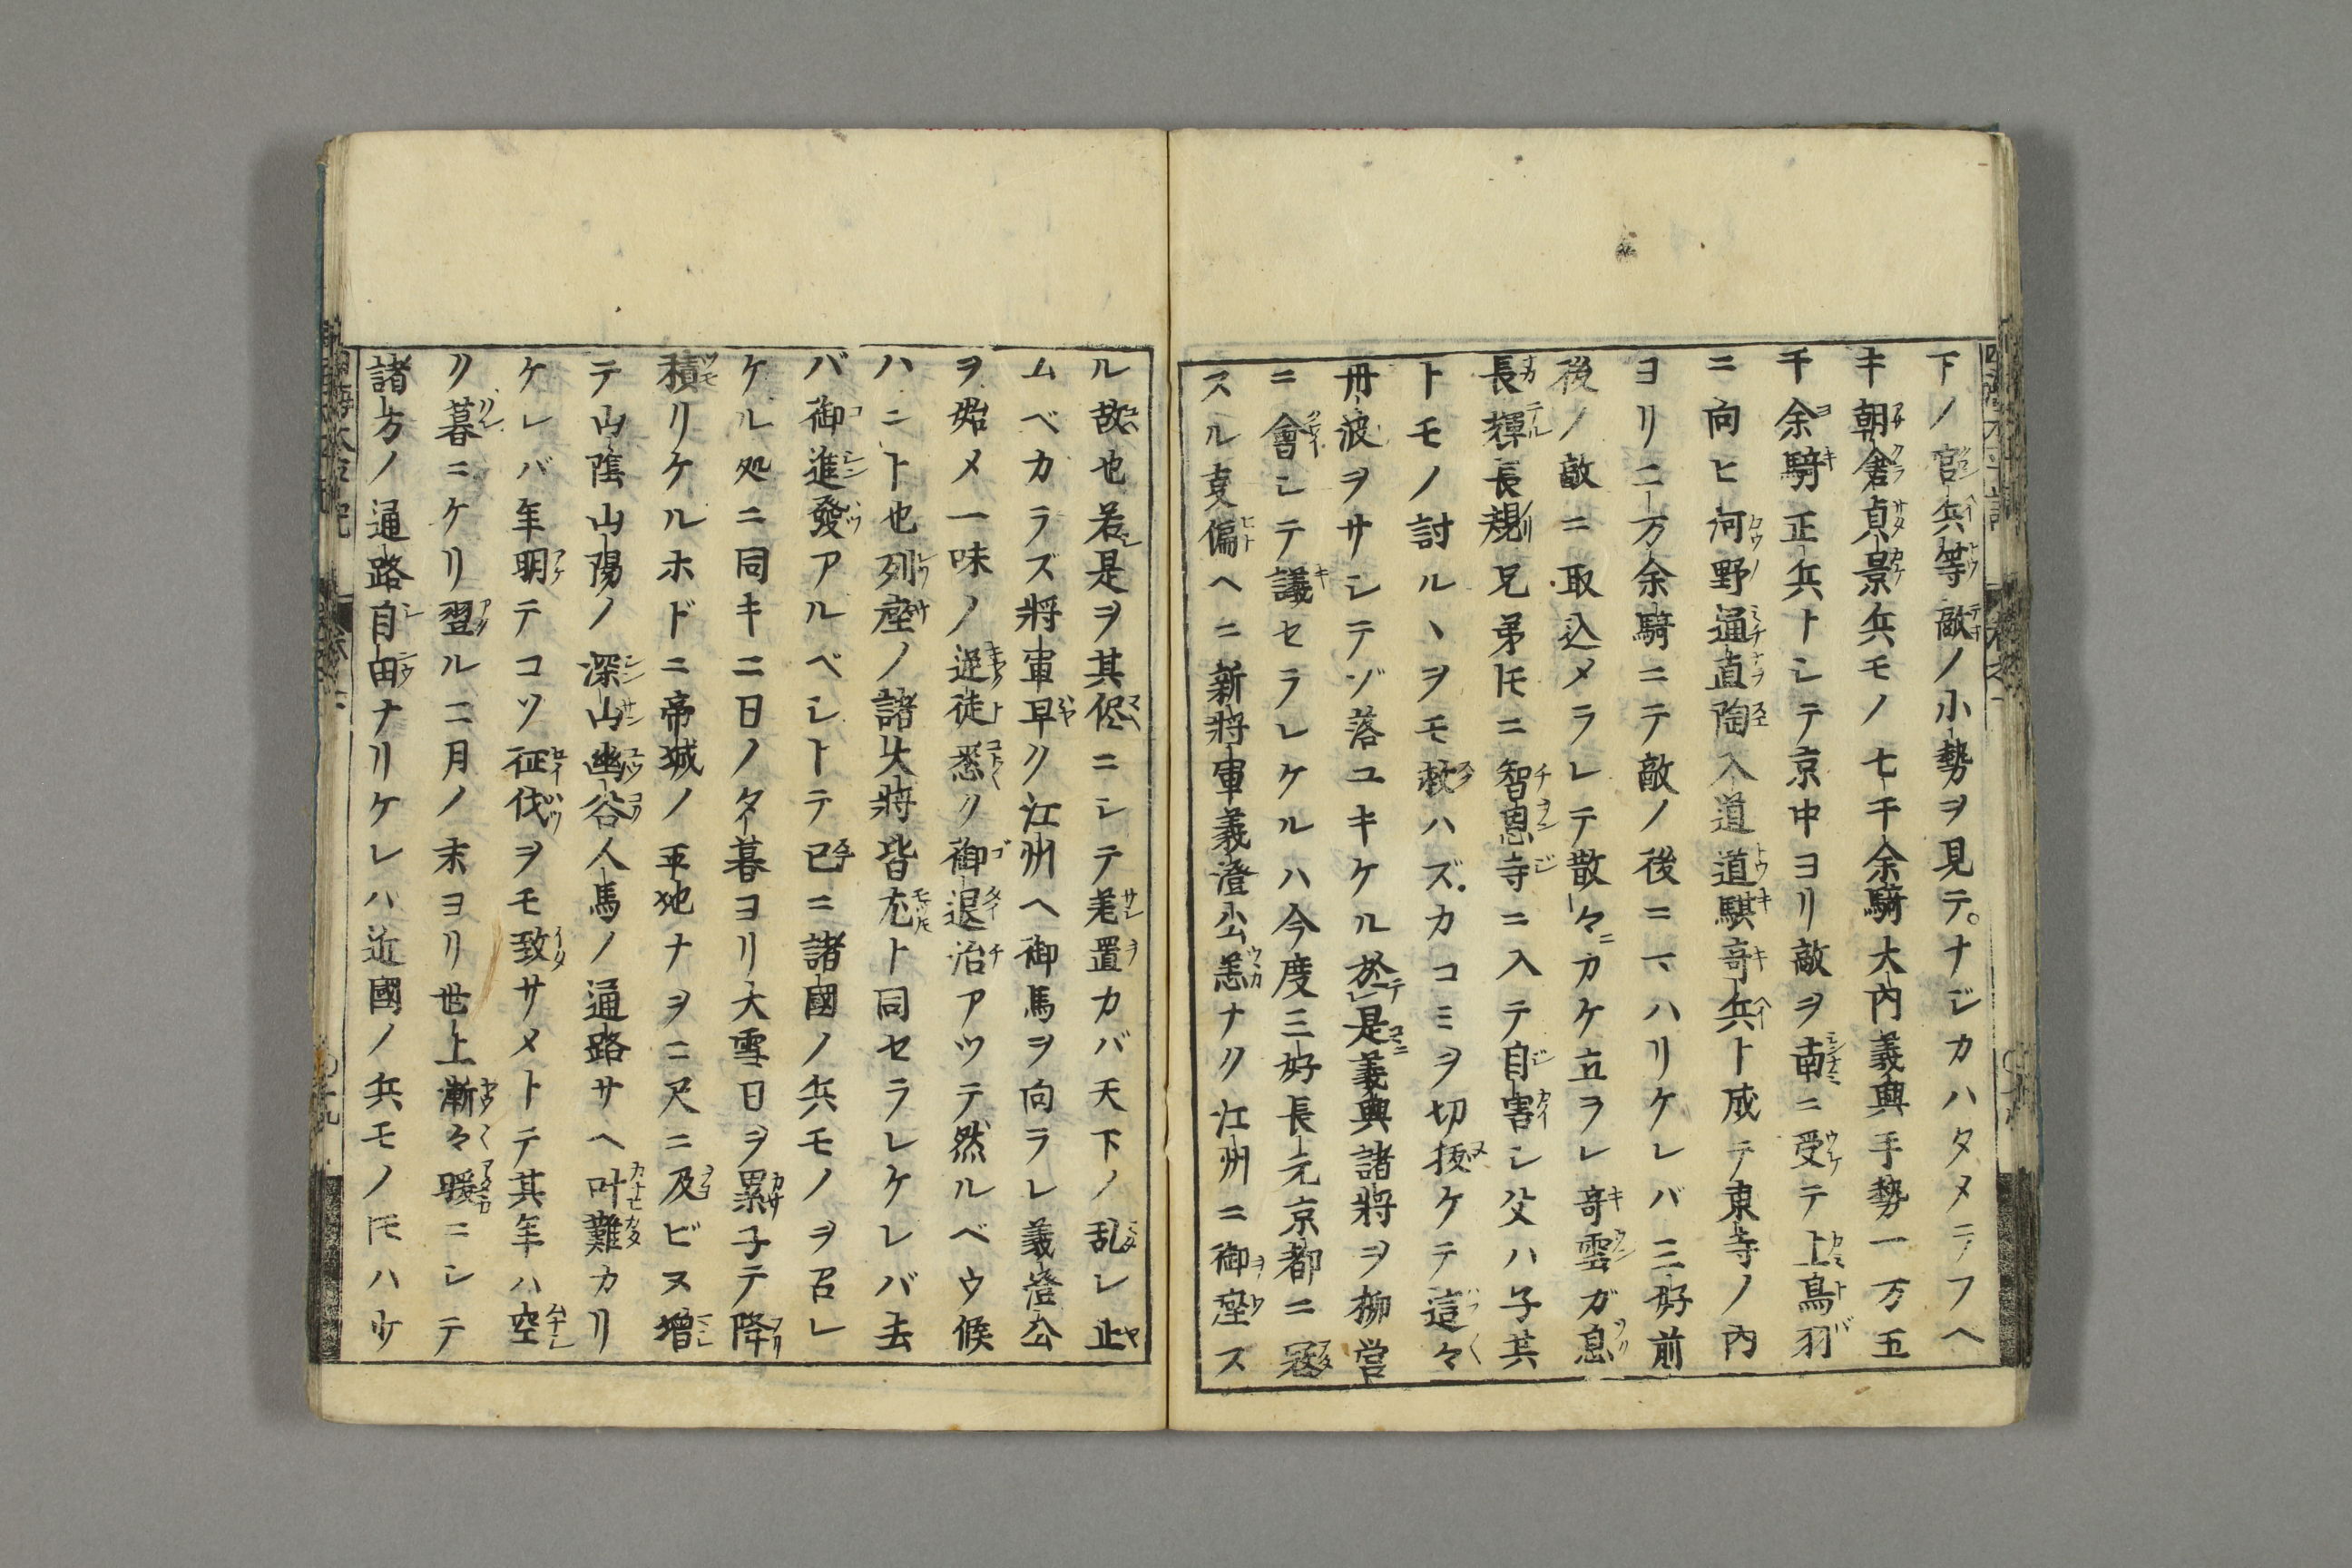 下ノ官兵等敵ノ小勢ヲ見テ。ナジカハタメラフヘ
キ朝倉貞景兵モノ七千余騎大内義興手勢一万五
千余騎正兵トシテ京中ヨリ敵ヲ南ニ受テ上鳥羽
ニ向ヒ河野通直陶入道道騏奇兵ト成テ東寺ノ内
ヨリ二万余騎ニテ敵ノ後ニマハリケレバ三好前
後ノ敵ニ取込メラレテ散々ニカケ立ヲレ奇雲ガ息
長輝長規兄弟𪜈ニ智恩寺ニ入テ自害シ父ハ子共
トモノ討ルヽヲモ救ハズ。カコミヲ切抜ケテ這々
丹波ヲサシテゾ落ユキケル於是義興諸將ヲ柳営
ニ會シテ議セラレケルハ今度三好長元京都ニ冦
スル㕝偏ヘニ新將軍義澄公恙ナク江州ニ御座ス
ル故也若是ヲ其侭ニシテ差置カバ天下ノ乱レ止
ムベカラズ將軍早ク江州ヘ御馬ヲ向ラレ義澄公
ヲ始メ一味ノ逆徒悉ク御退治アツテ然ルベウ候
ハント也列座ノ諸大將皆尤ト同セラレケレバ去
バ御進發アルベシトテ已ニ諸國ノ兵モノヲ召レ
ケル処ニ同キ二日ノ夕暮ヨリ大雪日ヲ累子テ降
積リケルホドニ帝城ノ平地ナヲ二尺ニ及ビヌ増
テ山陰山陽ノ深山幽谷人馬ノ通路サヘ叶難カリ
ケレバ年明テコソ征伐ヲモ致サメトテ其年ハ空
ク暮ニケリ翌ル二月ノ末ヨリ世上漸々暖ニシテ
諸方ノ通路自由ナリケレハ近國ノ兵モノ𪜈ハ少